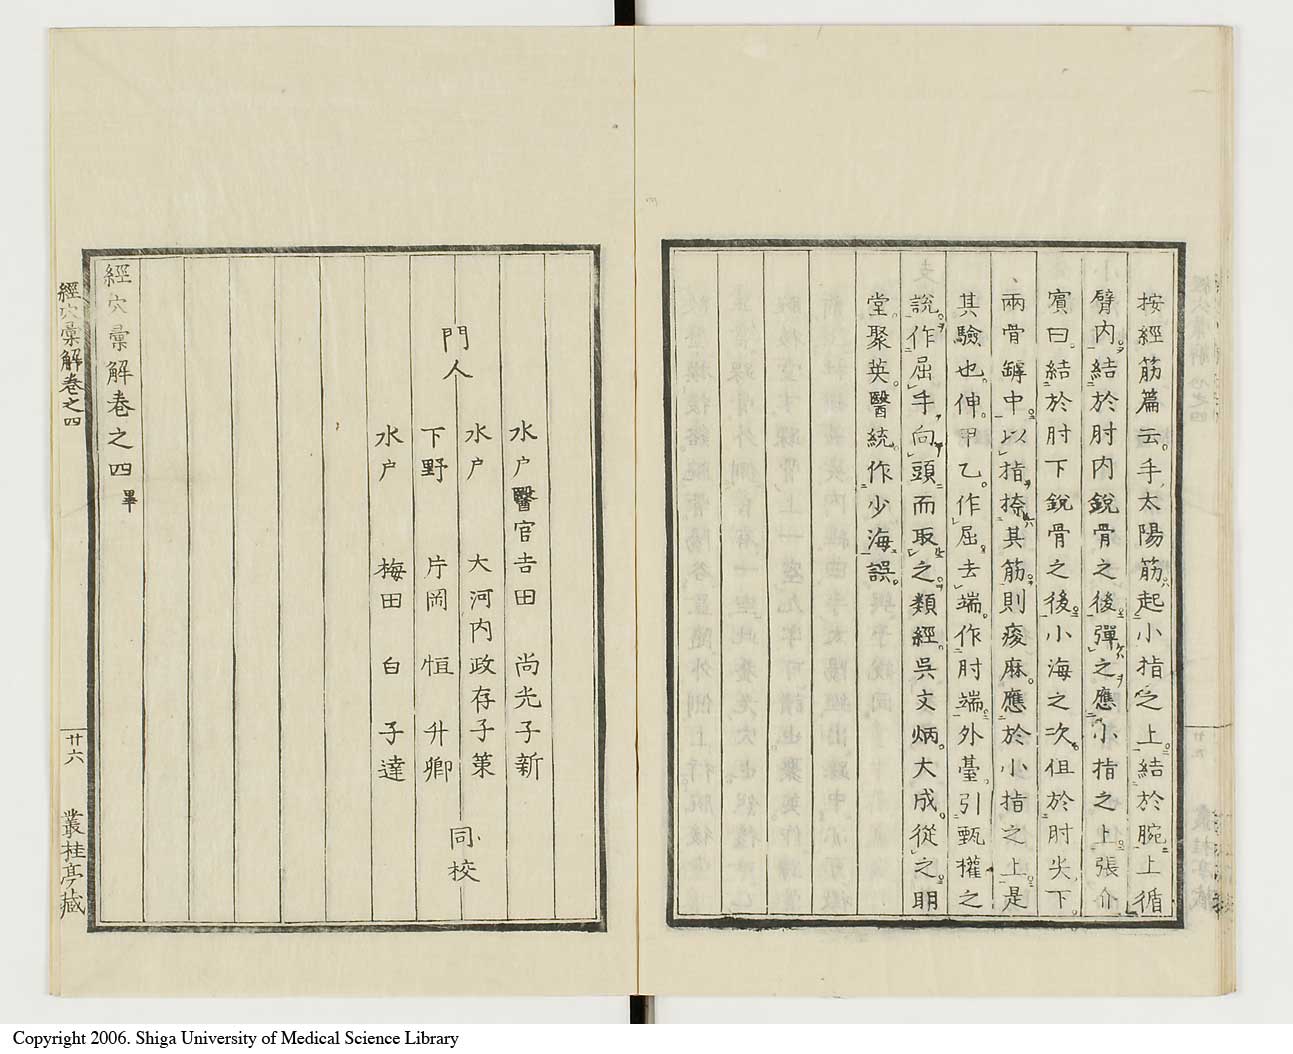 按經筋篇云手太陽筋起小指之上結於腕上循
臂内結於肘内銳骨之後彈之應小指之上張介
賓曰結於肘下銳骨之後小海之次但於肘尖下
兩骨罅中以指捺其筋則痠麻應於小指之上是
其驗也伸甲乙作屈去端作肘端外臺引甄權之
說作屈手向頭而取之類經吳文炳大成從之明
堂聚英醫統作少海誤
門人
水户醫官吉田尚光子新
水户 大河内政存子策
下野 片岡恒升卿
水户 梅田白子達
同校
經穴彙解卷之四畢
經穴彙解卷之四
廿六
叢桂亭藏
Copyright 2006. Shiga University of Medical Science Library